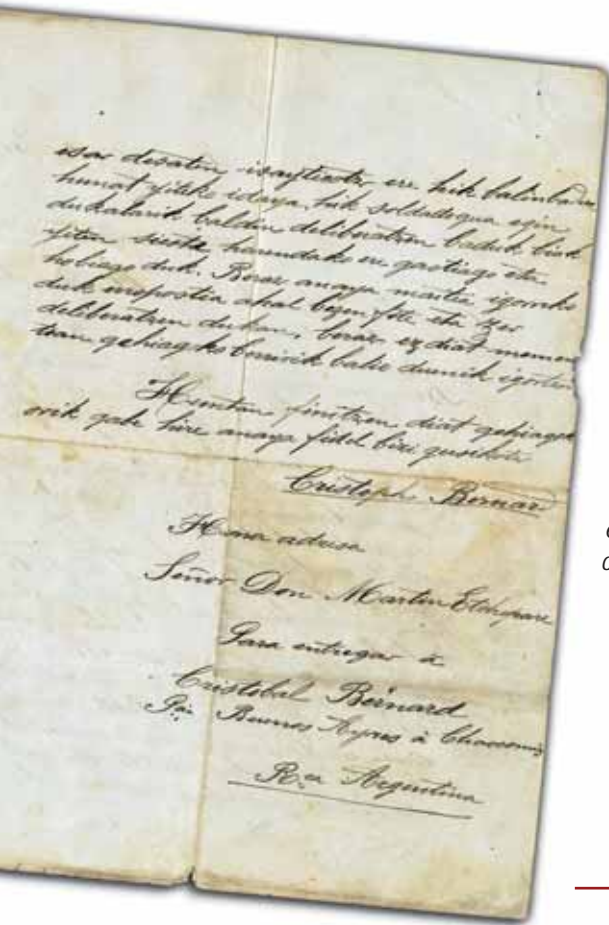 esar desatin isaytecotz ere hik balinbaduc
hunat yiteko idaya, hik soldadogua egin
dukalarik baldin deliberatzen baduk biak
yiten sieste harendako ere gastiago eta
hobiago duk. Beraz anaya maitia igorriko
duk errepostia ahal bezen fite eta zer
deliberatzen dukan, beraz ez diat momen
tean gehiagko berririk balio duenik igortzen
Hemtan finitzen diat gehiagok
orik gabe hire anaya fidel bizi guzikotz
Cristophe Bernar
Hona adresa
Señor Don Martin Etchepare
Para entregar à
Cristobal Bernard
Par Buenos Ayres à Chascomus
R.ca Argentina